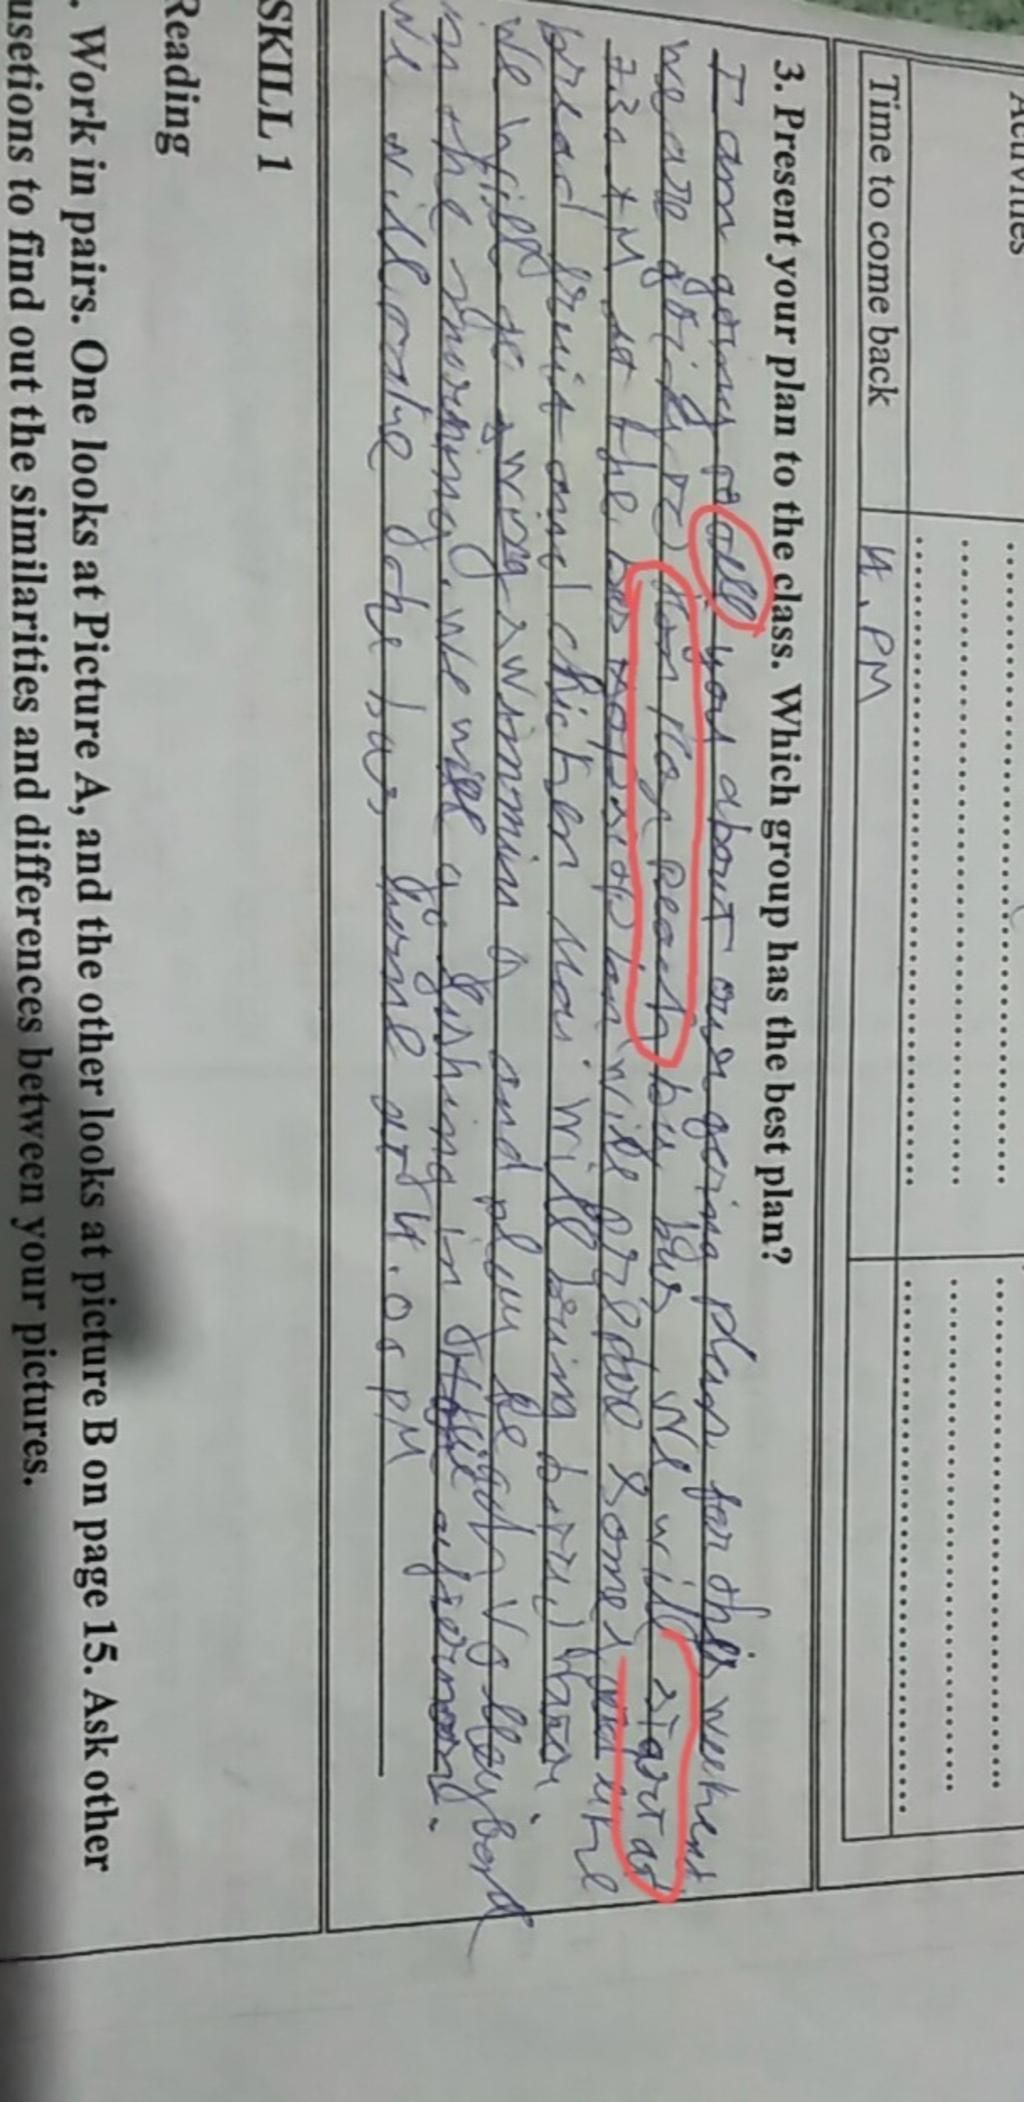 Activities
Time to come back
4. PM
3. Present your plan to the class. Which group has the best plan?
I am going to tell you about our going plan for this weekent
we are going to by bus We will start at
7.30 AM at the will some
bread fruit and chicken Mai will bring
We will go swimming and play beach Volleyball
in the morning. We will go fishing in afternoon.
We will the bus home at 4.05 PM
SKILL 1
Reading
. Work in pairs. One looks at Picture A, and the other looks at picture B on page 15. Ask other
usetions to find out the similarities and differences between your pictures.